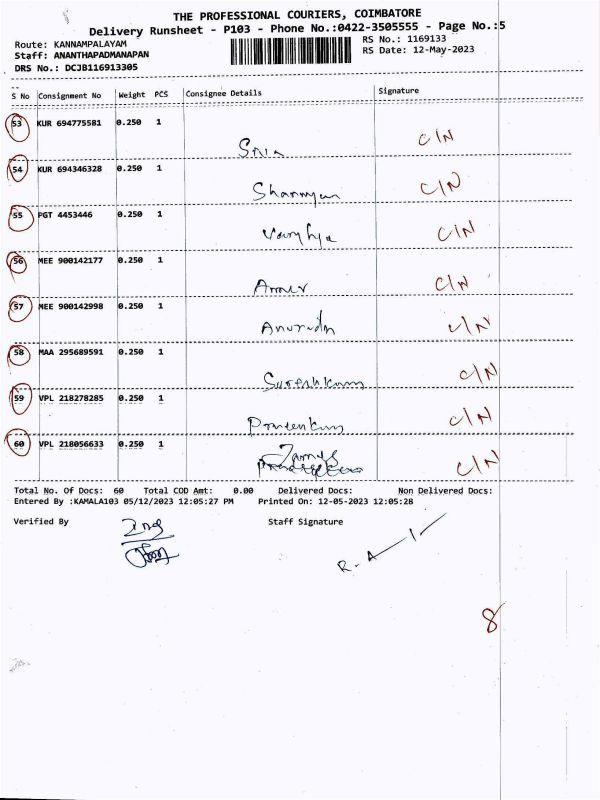 THE PROFESSIONAL COURIERS, COIMBATORE
Delivery Runsheet - P103 - Phone No.:0422-3505555 - Page No.:5
Route: KANNAMPALAYAM RS No.: 1169133
Staff: ANANTHAPADMANAPAN RS Date: 12-May-2023
DRS No.: DCJB116913305
S No Consignment No Weight PCS Consignee Details Signature
53 KUR 694775581 0.250 1
C/N
54 KUR 694346328 0.250 1
C/N
55 PGT 4453446 0.250 1
C/N
56 MEE 900142177 0.250 1
C/N
57 MEE 900142998 0.250 1
C/N
58 MAA 295689591 0.250 1
Sureshkum C/N
59 VPL 218278285 0.250 1
C/N
60 VPL 218056633 0.250 1
C/N
Total No. Of Docs: 60 Total COD Amt: 0.00 Delivered Docs: Non Delivered Docs:
Entered By :KAMALA103 05/12/2023 12:05:27 PM Printed On: 12-05-2023 12:05:28
Verified By Staff Signature
8